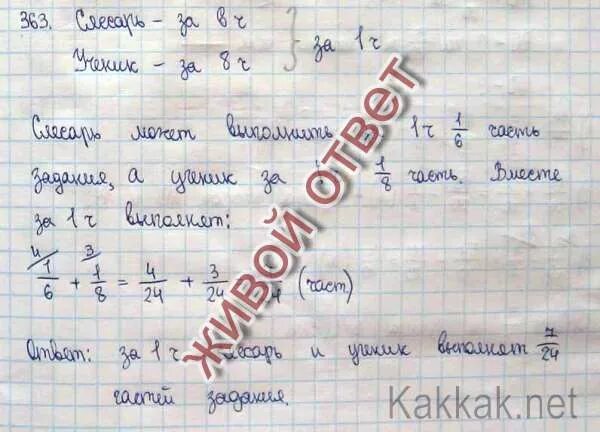 363. Слесарь - за 6 ч
Ученик - за 8 ч } за 1 ч
Слесарь может выполнить 1 ч 1/6 часть
задания, а ученик за 1/8 часть. Вместе
за 1 ч выполнят:
4 3
1/6 + 1/8 = 4/24 + 3/24 (част)
Ответ: за 1 ч и ученик выполнят 7/24
частей задания.
ЖИВОЙ ОТВЕТ
Kakkak.net